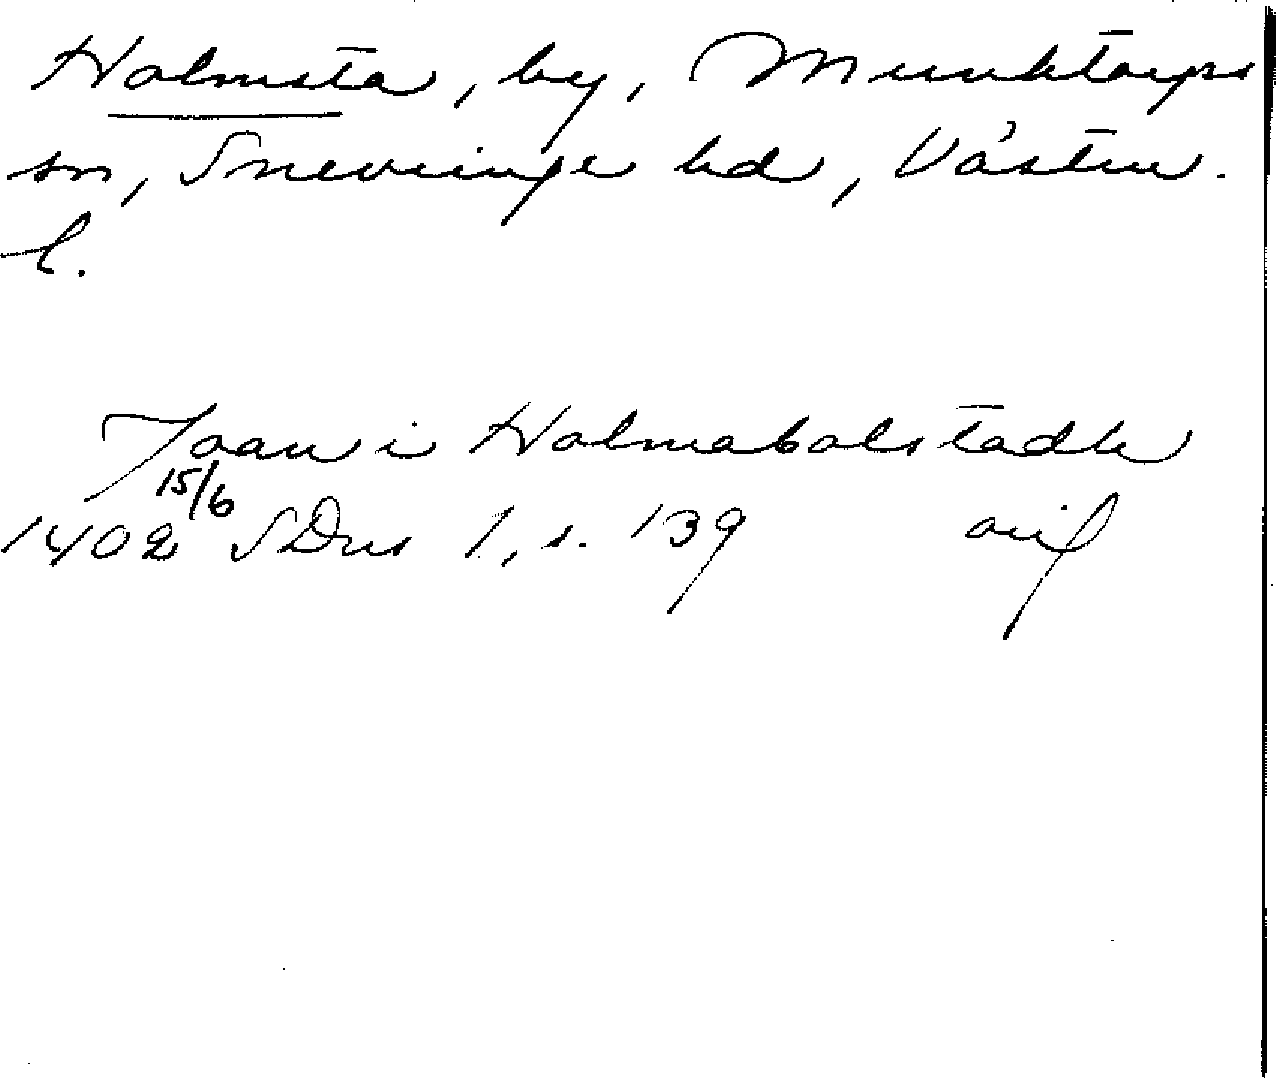 Holmsta, by, Munktorps
sn, Snevringe hd, Västm.
l.
Joan i Holmabolstadh
15/6
1402 SDns 1, s. 139 avs